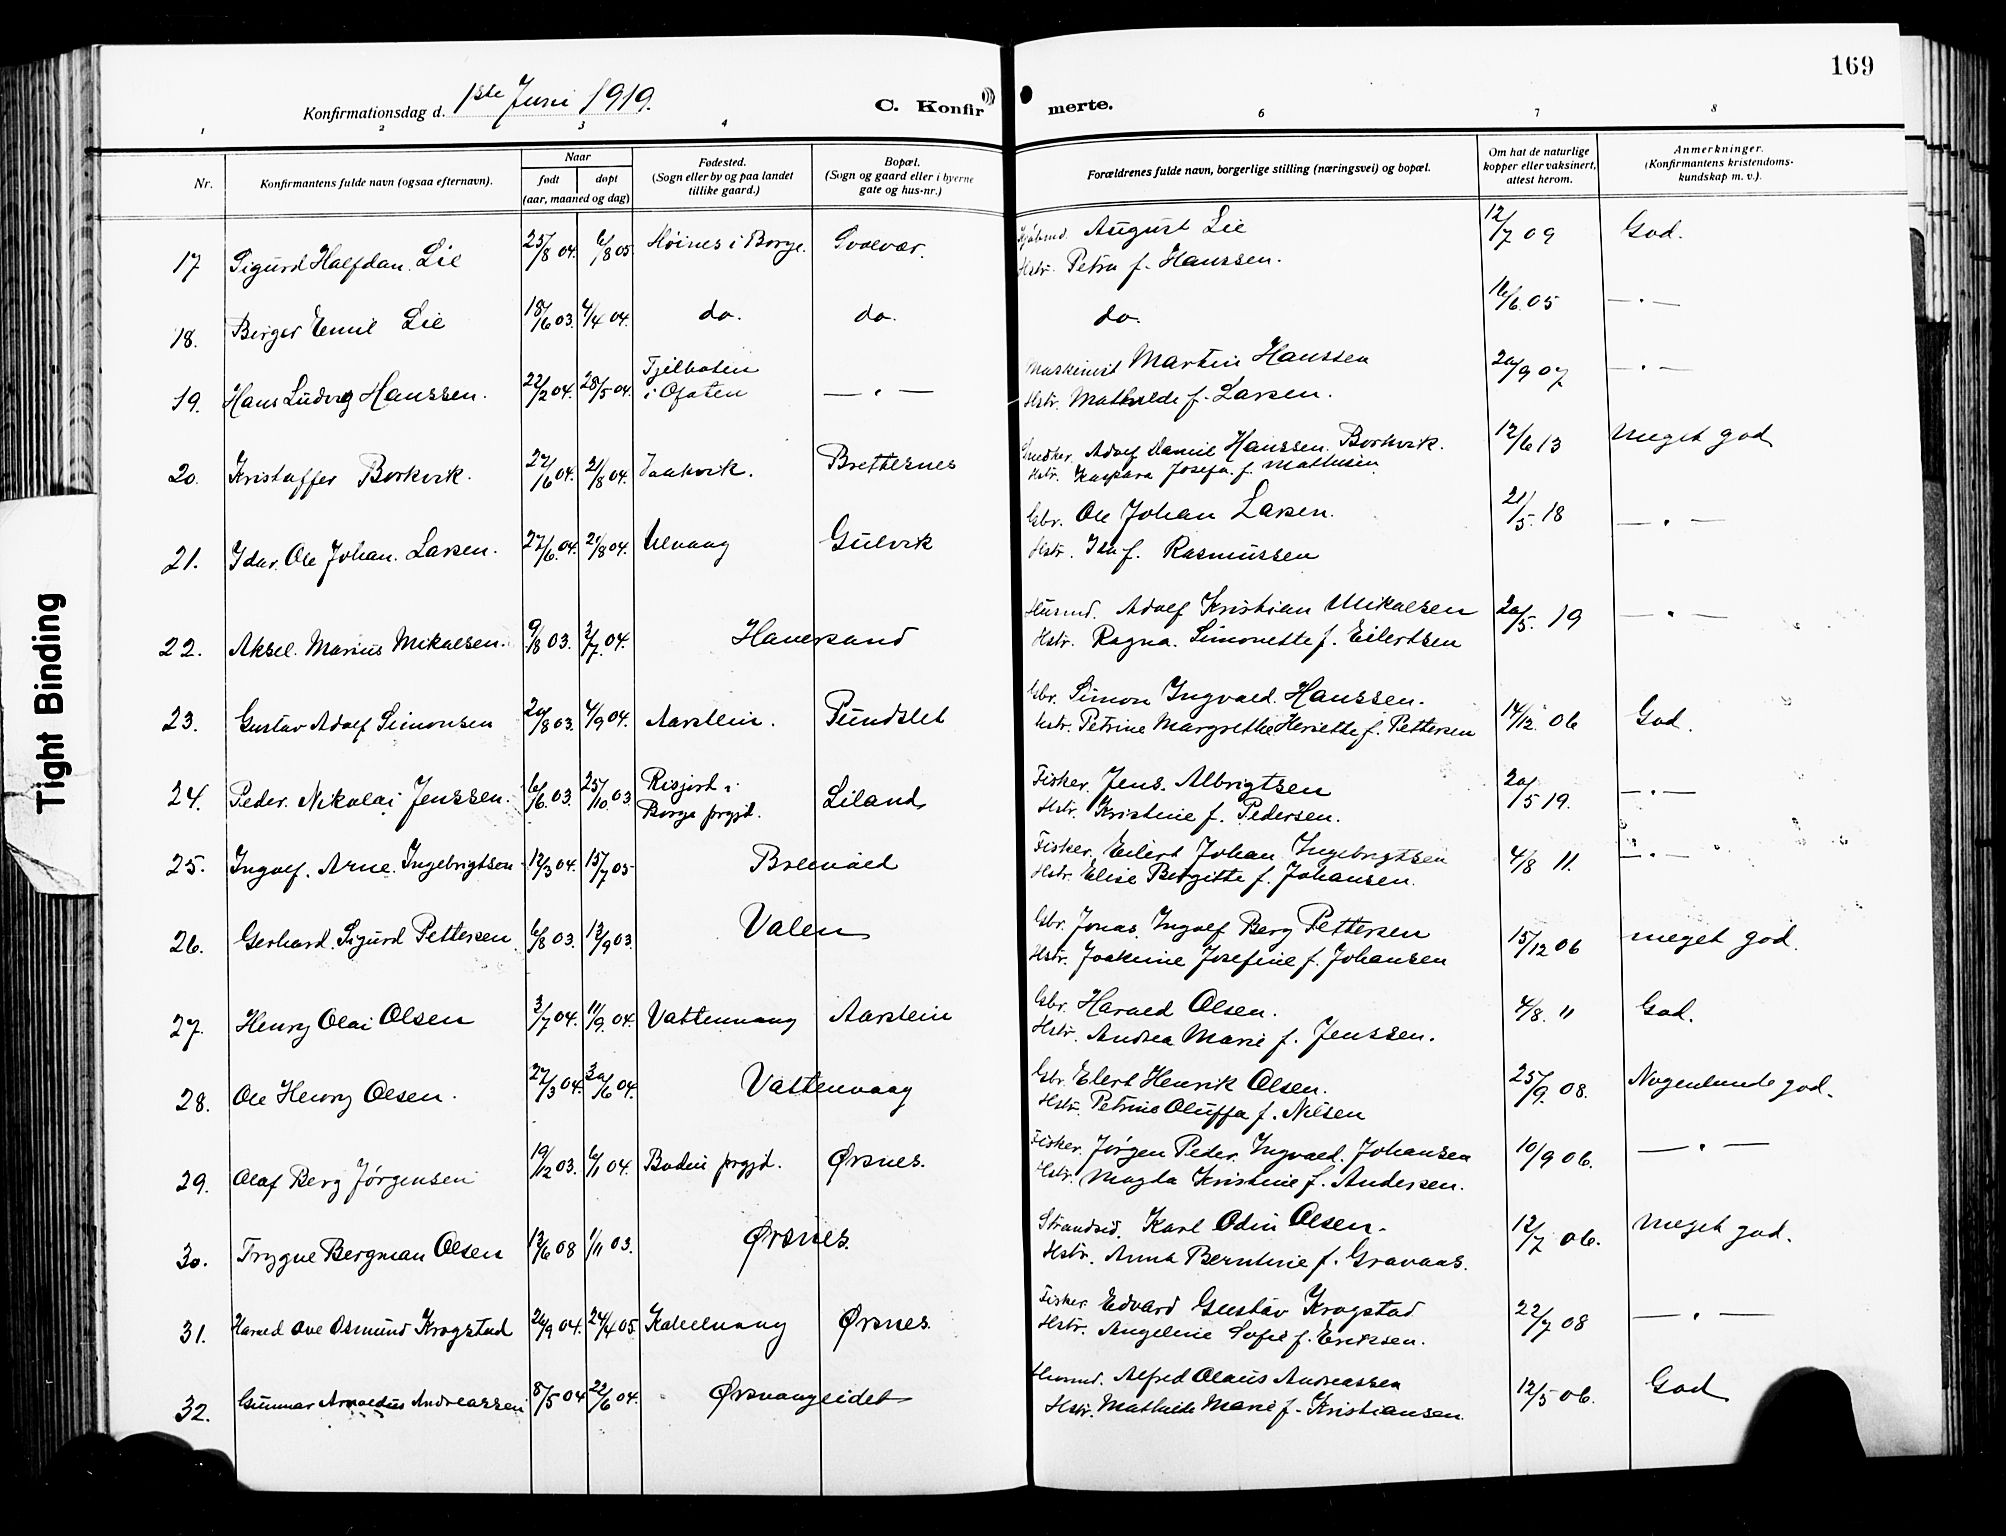 169
Konfirmationsdag d. 1ste Juni 1919.
C. Konfir merte.
1 2 3 4 6 7 8
Nr.
Konfirmantens fulde navn (ogsaa efternavn).
Naar
født døpt
(aar, maaned og dag)
Fødested.
(Sogn eller by og paa landet
tillike gaard.)
Bopæl.
(Sogn og gaard eller i byerne
gate og hus-nr.)
Forældrenes fulde navn, borgerlige stilling (næringsvei) og bopæl.
Om hat de naturlige
kopper eller vaksinert,
attest herom.
Anmerkninger.
(Konfirmantens kristendoms-
kundskap m. v.).
17 Sigurd Halfdan Lie 25/8 04. 6/8 05 Høines i Borge. Svolvær. August Lie 12/7 09 God.
Hstr. Petra f. Hanssen.
18. Berger Emil Lie 18/6 03. 4/4 04. do. do. do. 16/6 05 — " —
19. Hans Ludvig Hanssen. 22/2 04. 28/5 04. Fjelboten i Ofoten — " — Maskinist Martin Hanssen 20/9 07 — " —
Hstr. Mathilde f. Larsen.
20. Kristoffer Borkvik. 27/6 04. 21/8 04. Brettesnes Adolf Daniel Hanssen Borkvik. 12/6 13 Meget god
Hstr. Kaspara Josefa f. Mathisen
21. Idar Ole Johan Larsen. 27/6 04. 21/8 04. Ulvaag Gulvik Gbr. Ole Johan Larsen. 21/5. 18 — " —
Hstr. Ida f. Rasmussen
22. Aksel Marius Mikalsen. 9/8 03. 3/7 04. Haversand Husmd. Adolf Kristian Mikalsen 20/5. 19 — " —
Hstr. Ragna Simonette f. Eilertsen
23. Gustav Adolf Simonsen 20/8 03. 4/9 04. Aarstein. Pundslet Gbr. Simon Ingvald Hanssen. 14/12 06 God.
Hstr. Petrine Margrethe Heriette f. Pettersen
24. Peder Nikolai Jenssen. 6/6 03. 25/10 03 Risjord i Borge prgjd. Liland Fisker Jens Albrigtsen 20/5 19. — " —
Hstr. Kristine f. Pedersen.
25. Ingolf Arne Ingebrigtsen 12/3 04. 15/7 05 Brenvold Fisker Eilert Johan Ingebrigtsen 4/8 11. — " —
Hstr. Elise Bergitte f. Johansen.
26. Gerhard Sigurd Pettersen 6/8 03. 13/9 03. Valen Gbr. Jonas Ingolf Berg Pettersen 15/12 06 meget god.
Hstr. Joakime Josefine f. Johansen
27. Henry Olai Olsen 3/7 04. 11/9 04. Vattenvaag Aarstein Gbr. Harald Olsen. 4/8. 11 God.
Hstr. Andrea Marie f. Jenssen.
28. Ole Henry Olsen. 27/3 04. 30/6 04. Vattenvaag Gbr. Elert Henrik Olsen. 25/9. 08. Nogenlunde god.
Hstr. Petrine Oluffa f. Nilsen
29. Olaf Berg Jørgensen 19/12 03. 6/1 04. Bodin prgjd. Ørsnes. Fisker Jørgen Peder Ingvald Johansen 10/9 06. — " —
Hstr. Magda Kristine f. Andersen.
30. Trygve Bergman Olsen 13/6 08 1/11 03. Ørsnes. Strandsid. Karl Odin Olsen. 12/7 06. Meget god.
Hstr. Anna Berntine f. Gravaas.
31. Harald Ove Osmund Krogstad 26/9 04. 24/4 05. Kabelvaag Ørsnes. Fisker Edvard Gustav Krogstad 22/7 08 — " —
Hstr. Angeline Sofie f. Eriksen.
32. Gunnar Arnoldus Andreassen 8/5 04 22/6 04. Ørsvaageidet Husmd. Alfred Olaus Andreassen 12/5 06. God
Hstr. Mathilde Marie f. Kristiansen.
Tight Binding